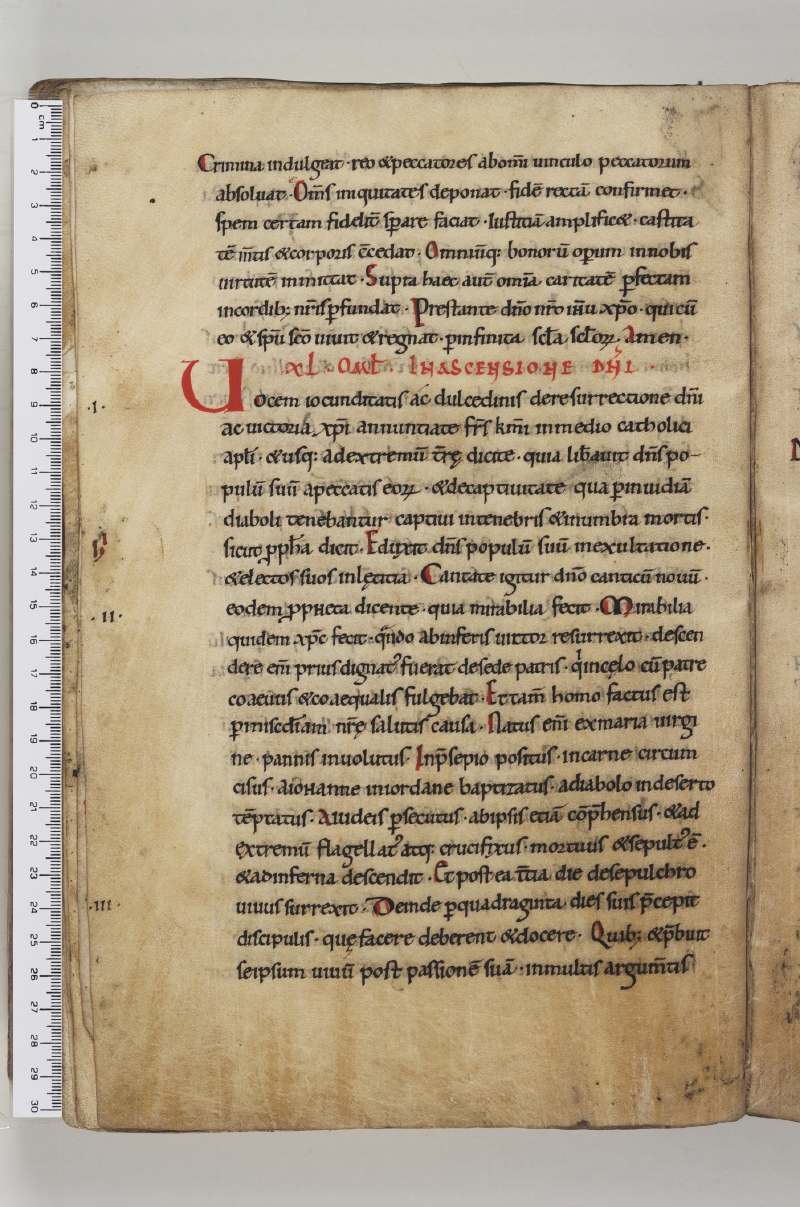 Crimina indulgeat · reo & peccatores ab om̄i uinculo peccatorum
absoluat · Om̄s iniquitates deponat · fidē rectā confirmet ·
spem certam fideliū sperare faciat · Iustitiā amplific& · castita
tē m̄tis & corporis c̄cedat · Omniūq: bonorū oꝑum in nobis
uirtutē inmittat · Supra haec aut̄ omīa caritatē ꝑfectam
in cordib; nr̄is ꝑfundat · Prestante dn̄o nr̄o ih̄u xp̄o · qui cū
eo & sp̄u sc̄o uiuit & regnat · ꝑ infinita sc̄la sc̄loꝝ Amen ·
XL · OML̄ · IN ASCENSIONE DN̄I ·
Uocem iocunditatis ac dulcedinis de resurrectione dn̄i
· I ·
ac uictoria xp̄i annuntiate fr̄s k̄mi in medio catholici
apl̄i · & usq: ad extremū t̄rę dicite · quia lib̄auit dn̄s po-
pulū suū a peccatis eoꝝ · & de captiuitate qua ꝑ inuidiā
diaboli tenebantur captiui in tenebris & in umbra mortis ·
sicut ꝓph̄a dicit · Eduxit dn̄s populū suū in exultatione ·
& electos suos in lętitia · Cantate igitur dn̄o canticū nouū ·
eodem ꝓpheta dicente · quia mirabilia fecit · Mirabilia
· II ·
quidem xp̄c fecit · qn̄do ab inferis uictor resurrexit · descen
dere em̄ prius dignat᾽ fuerat de sede patris · qi in cęlo cū patre
coaeuus & coaequalis fulgebat · Et tam̄ homo factus est
ꝑ misc̄diam nr̄ę salutis causa · Natus em̄ ex maria uirgi
ne · pannis inuolutus · In p̄sepio positus · in carne circum
cisus · a iohanne in iordane baptizatus · a diabolo in deserto
tēptatus · A iudeis ꝑsecutus · ab ipsis etiā cōp̄hensus · & ad
extremū flagellat᾽ atq: crucifixus · mortuus & sepult᾽ ē ·
& ad inferna descendit · Et post ea t̄tia die de sepulchro
uiuus surrexit · Deinde ꝑ quadraginta dies suis p̄cepit
· III ·
discipulis · quę facere deberent & docere · Quib; & p̄buit
seipsum uiuū post passionē suā · in multis argum̄tis